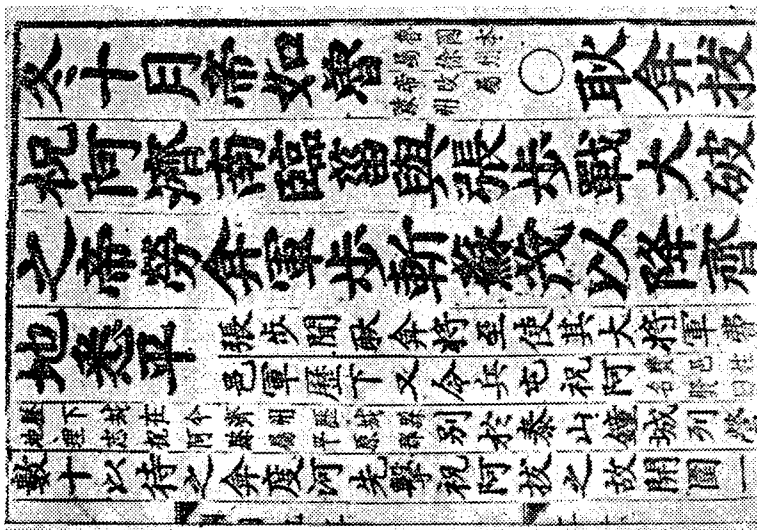 冬十月帝如魯魯國本屬徐州帝改屬豫州○耿弇拔
祝阿濟南臨菑與張步戰大破
之帝勞弇軍步斬蘇茂以降齊
地悉平張步聞耿弇將至使其大將軍費
邑軍歷下又令兵屯祝阿
別於泰山鐘城列營
數十以待之弇度河先擊祝阿拔之故開圍一